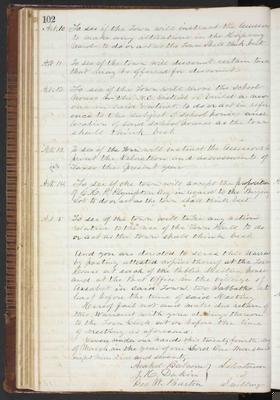 102
Art. 10 To see if the Town will instruct the Assessors
to make any alteration in the Highway
and to do or act as the town shall think best
Art. 11 To see if the town will discount certain taxes
that may be offered for discount
Art. 12 To see if the Town will move the School
House in the District or build a new
one in said District to do or act in refer-
ence to the subject of school house and
location of said School house as the town
should think best
Art. 13 To see if the Town will instruct the Assessors to
print the Valuation and assessment of
Taxes the present year
Art. 14 To see if the town will accept the proposition
of in regard to the
Lot to do or act as the town shall think best
Art. 15 To see if the town will take any action
relative to the use of the Town Hall to do
or act as the town shall think best
And you are directed to serve this Warrant
by posting attested copies thereof at the Town
House at each of the Public Meeting houses
and at the Post Office in the Village of
Assabet in said Town two Sabbaths at
least before the time of said Meeting
Hereof fail not and make due return of
this Warrant with your doings thereon
to the Town Clerk at or before the time
of meeting as aforesaid
Given under our hands this twenty fourth day
of March in the year of our Lord One thousand
eight hundred and seventy
Selectmen
of
Geo. W. Sudbury